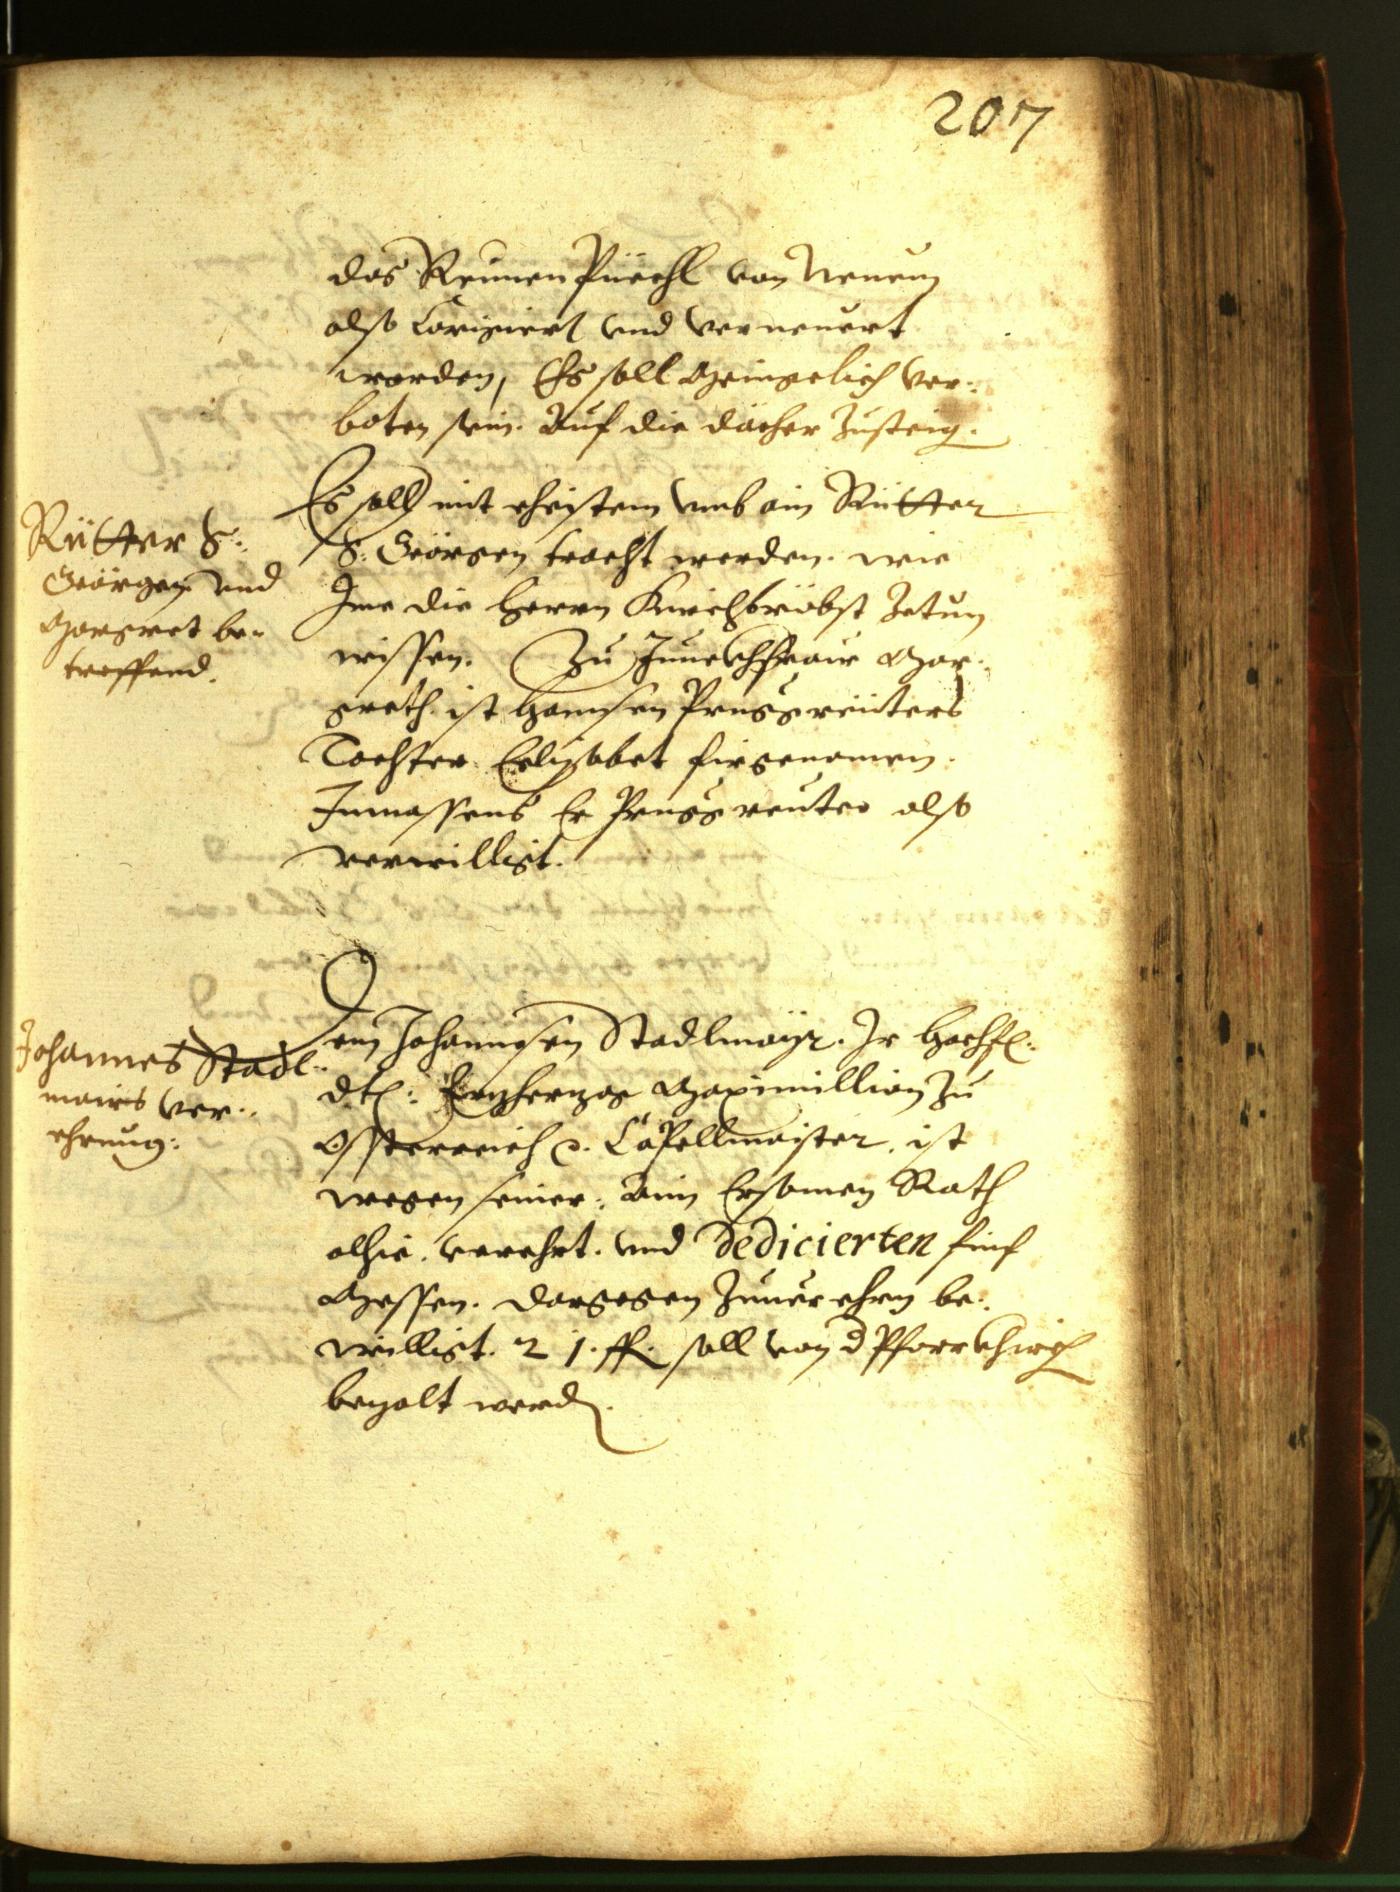 207
das Reimen Püechl von Neuem
also Corigiert vnd verneuert
worden, Es soll Menigelich ver-
boten sein. Auf die dächer zusteig.
Rütter S:
Georgen vnd
Margret be-
treffend.
Es soll mit ehistem vmb ain Rütter
S: Georgen tracht werden. wie
Ime die herrn Kirchbröbst zetun
wissen. Zu Junckhfraur Mar-
greth ist hannsen Preyssreüters
Tochter Elisabet fürgenomen.
Inmassens Er Preyssreuter also
verwilligt.
Johannes Stadl-
mairs ver-
ehrung:
Dem Johannsen Stadlmayr. Ir hochfl:
dtl: Erzherzog Maximillian zu
Össterreich p. Capellmaister, ist
wegen seiner, Aim Ersamen Rath
alhie. verehrt. vnd Dedicierten finf
Messen. dargegen zuuerehrn be-
willigt. 21. fl. soll von d Pfarrkhirch
bezalt werdn.